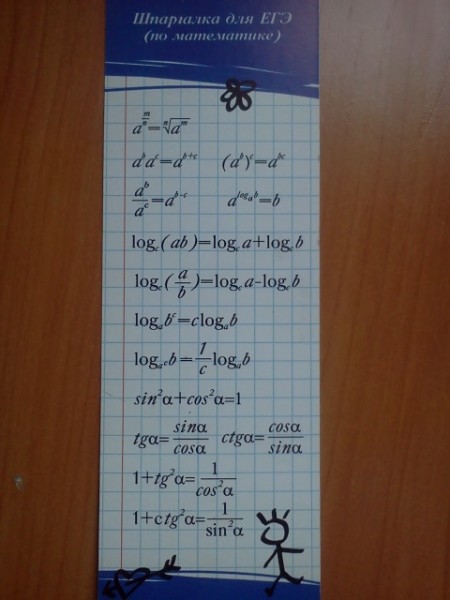 Шпаргалка для ЕГЭ
(по математике)
a^{m/n}=ⁿ√a^m
a^b a^c=a^{b+c} (a^b)^c=a^{bc}
a^b/a^c=a^{b-c} a^{log_a b}=b
log_c(ab)=log_c a+log_c b
log_c(a/b)=log_c a-log_c b
log_a b^c=c log_a b
log_{a^c} b=1/c log_a b
sin²α+cos²α=1
tgα=sinα/cosα ctgα=cosα/sinα
1+tg²α=1/cos²α
1+ctg²α=1/sin²α